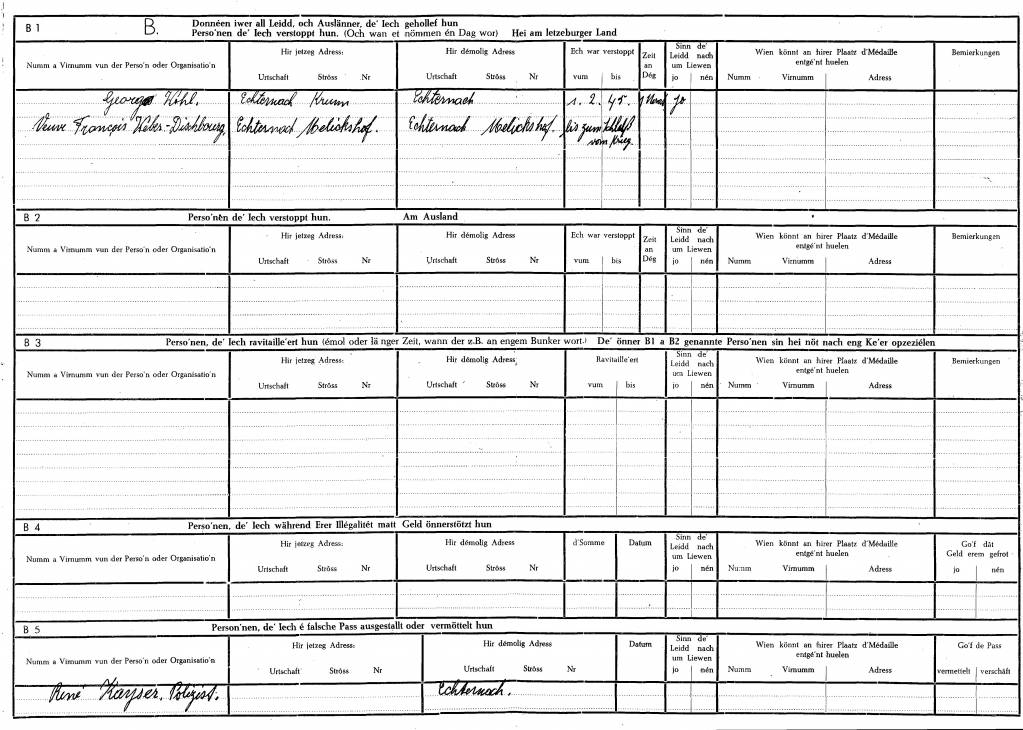 B 1 B. Donnéen iwer all Leidd, och Auslänner, de' Iech gehollef hun
Perso'nen de' Iech verstoppt hun. (Och wan et nömmen én Dag wor) Hei am letzeburger Land
Numm a Virnumm vun der Perso'n oder Organisatio'n Hir jetzeg Adress: Hir démolig Adress Ech war verstoppt Zeit an Dég Sinn de' Leidd nach um Liewen Wien könnt an hirer Plaatz d'Médaille entgé'nt huelen Bemierkungen
Urtschaft Ströss Nr Urtschaft Ströss Nr vum bis jo nén Numm Virnumm Adress
George Kohl. Echternach Krunn Echternach 1. 2. 45. jo
Veuve François Weber-Dischbourg Echternach Melickshof. Echternach Melickshof. bis zum Schluß
vom Krieg.
B 2 Perso'nen de' Iech verstoppt hun. Am Ausland
Numm a Virnumm vun der Perso'n oder Organisatio'n Hir jetzeg Adress: Hir démolig Adress Ech war verstoppt Zeit an Dég Sinn de' Leidd nach um Liewen Wien könnt an hirer Plaatz d'Médaille entgé'nt huelen Bemierkungen
Urtschaft Ströss Nr Urtschaft Ströss Nr vum bis jo nén Numm Virnumm Adress
B 3 Perso'nen, de' Iech ravitaille'ert hun (émol oder lä nger Zeit, wann der z.B. an engem Bunker wort.) De' önner B1 a B2 genannte Perso'nen sin hei nöt nach eng Ke'er opzeziélen
Numm a Virnumm vun der Perso'n oder Organisatio'n Hir jetzeg Adress: Hir démolig Adress Ravitaille'ert Sinn de' Leidd nach um Liewen Wien könnt an hirer Plaatz d'Médaille entgé'nt huelen Bemierkungen
Urtschaft Ströss Nr Urtschaft Ströss Nr vum bis jo nén Numm Virnumm Adress
B 4 Perso'nen, de' Iech während Erer Illégalitét matt Geld önnerstötzt hun
Numm a Virnumm vun der Perso'n oder Organisatio'n Hir jetzeg Adress: Hir démolig Adress d'Somme Datum Sinn de' Leidd nach um Liewen Wien könnt an hirer Plaatz d'Médaille entgé'nt huelen Go'f dât Geld erem gefrot
Urtschaft Ströss Nr Urtschaft Ströss Nr jo nén Numm Virnumm Adress jo nén
B 5 Person'nen, de' Iech é falsche Pass ausgestallt oder vermöttelt hun
Numm a Virnumm vun der Perso'n oder Organisatio'n Hir jetzeg Adress: Hir démolig Adress Datum Sinn de' Leidd nach um Liewen Wien könnt an hirer Plaatz d'Médaille entgé'nt huelen Go'f de Pass
Urtschaft Ströss Nr Urtschaft Ströss Nr jo nén Numm Virnumm Adress vermettelt verschäft
René Kayser. Polizist. Echternach.